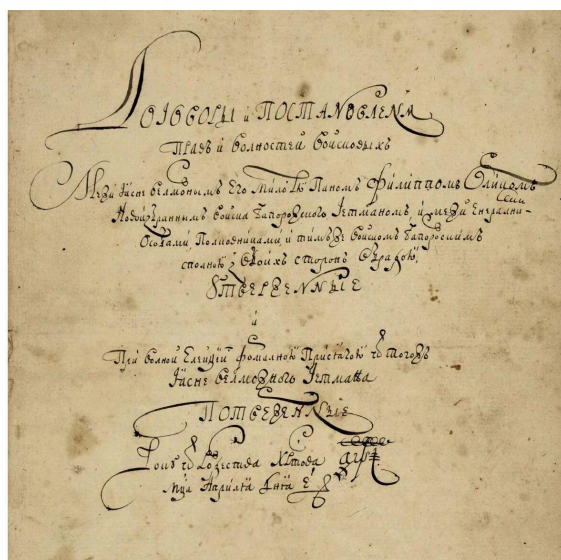 Договоры и Постановленѧ
Правъ и волностей войсковыхъ
Межи Ясне велможнымъ Его Млстю Паномъ Филиппомъ Орликомъ
Новоизбраннымъ войска Запорожского Гетманомъ, и межи Енерални-
Особами, Полковниками, и тимъже войскомъ Запорожскимъ
сполною з обоихъ сторон Обрадою,
Утверженные
и
При волной Елекцїи формалною Присягою ѿ тогожъ
Ясне велможного Гетмана
Потверженные
Року ѿ Рожества Христова аѱі
Мца Априлїа днѧ е